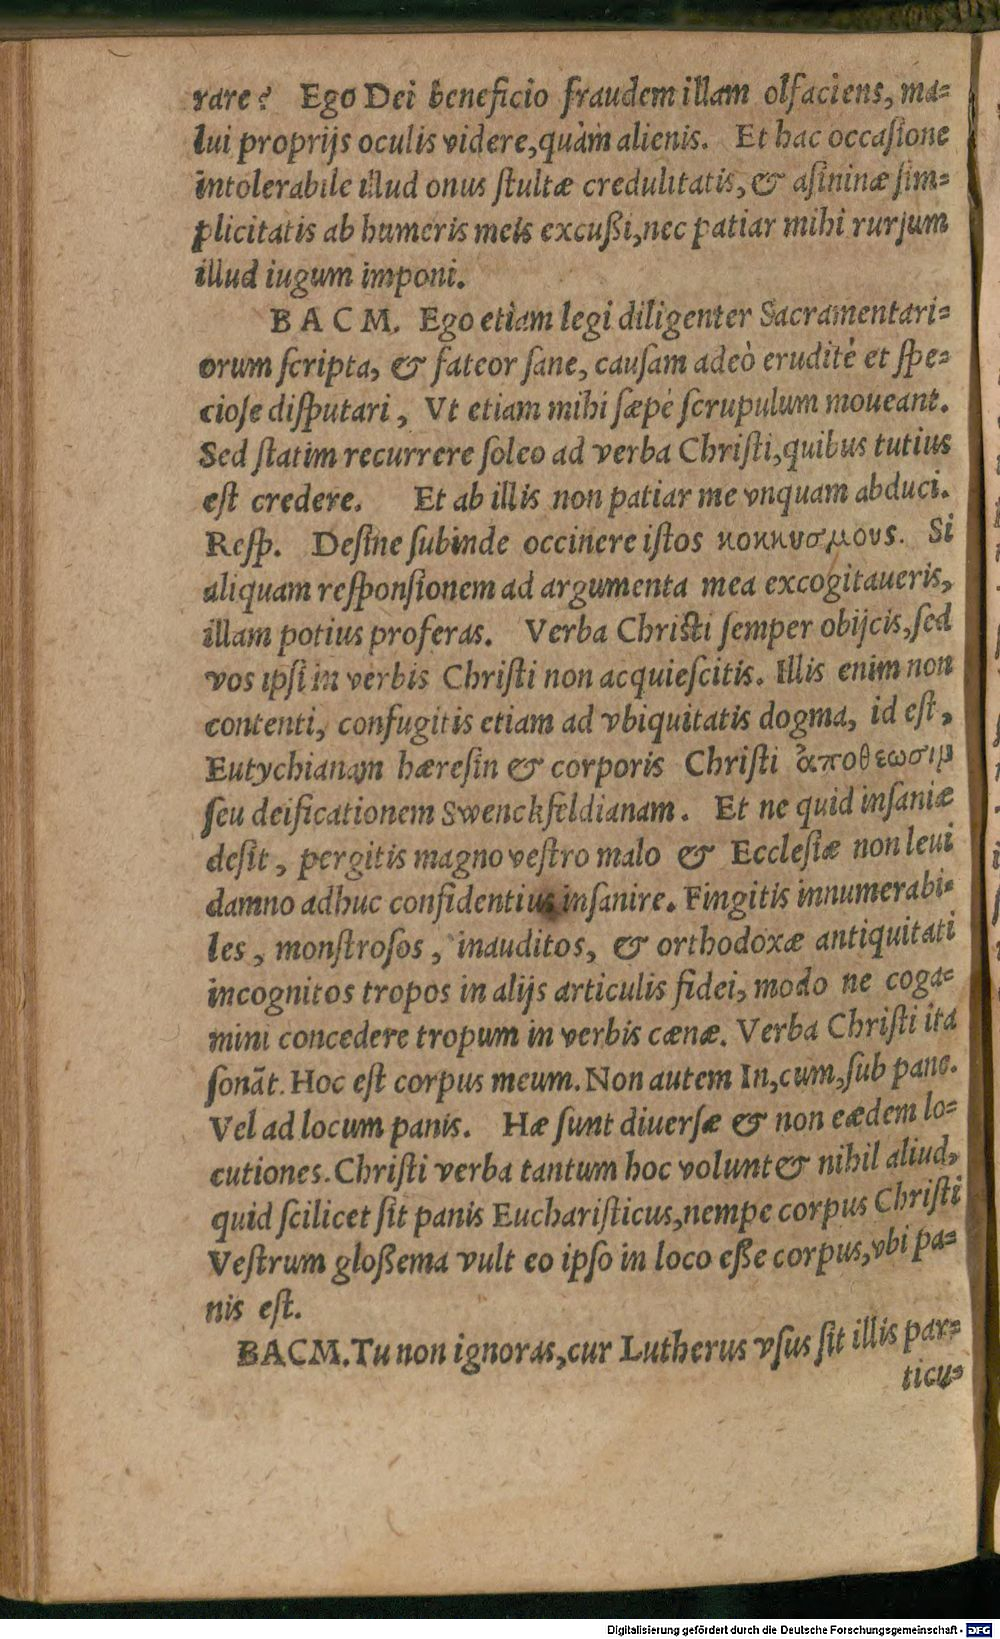 rare? Ego Dei beneficio fraudem illam olfaciens, ma=
lui proprijs oculis videre, quàm alienis. Et hac occasione
intolerabile illud onus stultæ credulitatis, & asininæ sim=
plicitatis ab humeris meis excußi, nec patiar mihi rursum
illud iugum imponi.
BACM. Ego etiam legi diligenter Sacramentari=
orum scripta, & fateor sane, causam adeò eruditè et spe=
ciose disputari, Vt etiam mihi sæpè scrupulum moueant.
Sed statim recurrere soleo ad verba Christi, quibus tutius
est credere. Et ab illis non patiar me vnquam abduci.
Resp. Desine subinde occinere istos κοκκυσμους. Si
aliquam responsionem ad argumenta mea excogitaueris,
illam potius proferas. Verba Christi semper obijcis, sed
vos ipsi in verbis Christi non acquiescitis. Illis enim non
contenti, confugitis etiam ad vbiquitatis dogma, id est,
Eutychianam hæresin & corporis Christi ἀποθεωσιμ
seu deificationem Swenckfeldianam. Et ne quid insaniæ
desit, pergitis magno vestro malo & Ecclesiæ non leui
damno adhuc confidentius insanire. Fingitis innumerabi=
les, monstrosos, inauditos, & orthodoxæ antiquitati
incognitos tropos in alijs articulis fidei, modo ne coga=
mini concedere tropum in verbis cænæ. Verba Christi ita
sonāt. Hoc est corpus meum. Non autem In, cum, sub pane.
Vel ad locum panis. Hæ sunt diuersæ & non eædem lo=
cutiones. Christi verba tantum hoc volunt & nihil aliud,
quid scilicet sit panis Eucharisticus, nempe corpus Christi
Vestrum gloßema vult eo ipso in loco eße corpus, vbi pa=
nis est.
BACM. Tu non ignoras, cur Lutherus vsus sit illis par=
ticu=
Digitalisierung gefördert durch die Deutsche Forschungsgemeinschaft - DFG